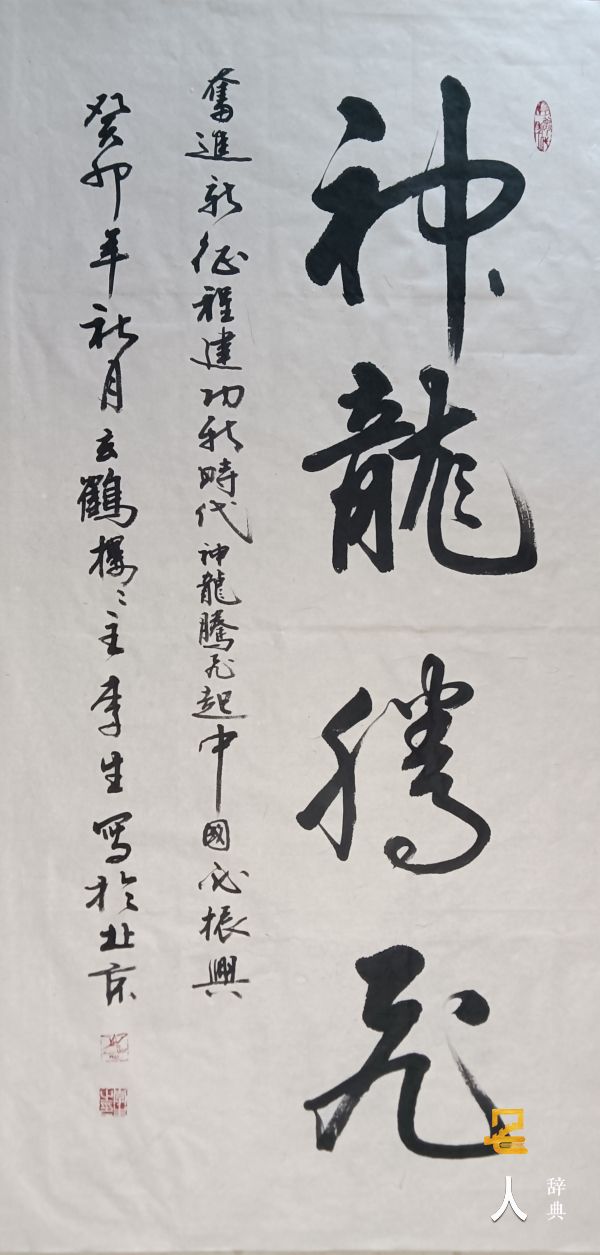 神龍騰飛
奮進新征程建功新時代神龍騰飛起中國必振興
癸卯年社月玄鶴樓々主李生寫於北京
名
人
辞典